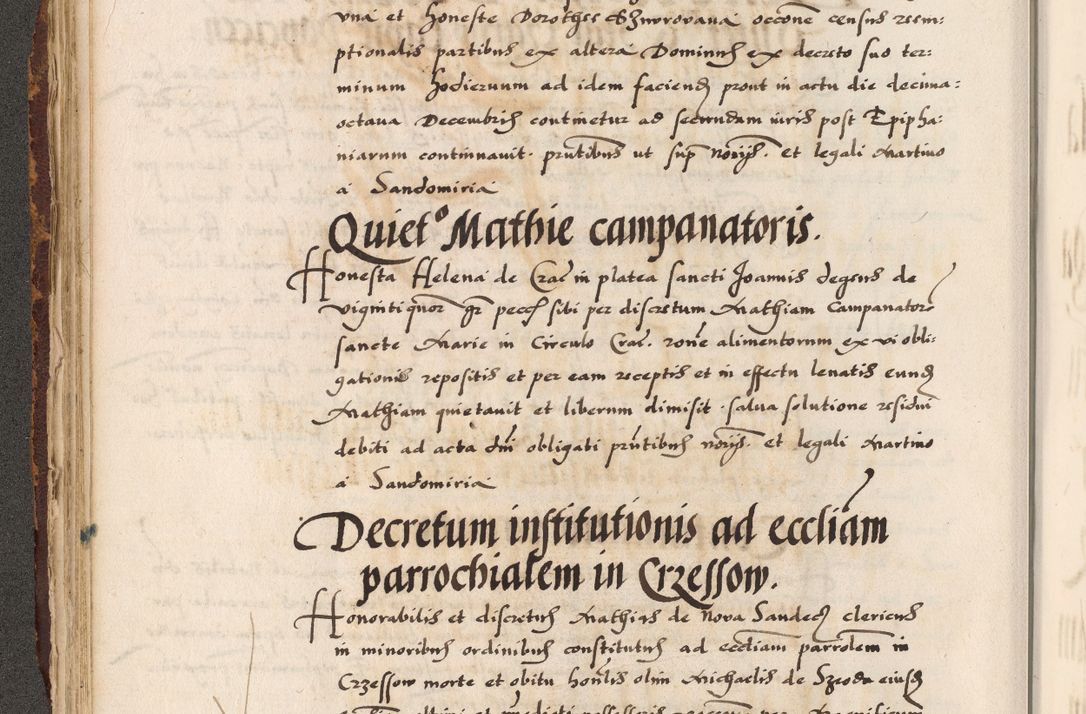 vna et honeste Dorothee Szworovana occone census reem:
ptionalis partibus ex altera Dominus ex decreto suo ter:
minum hodiernum ad idem faciend prout in actu die decima:
octava Decembris continetur ad secundam iuris post Epipha:
niarum continuavit. pntibus ut sup noriis. et legali Martino
a Sandomiria
Quietº Mathie campanatoris.
Honesta Helena de Crac in platea sancti Joannis degens de
viginti quor gr pecc sibi per discretum Mathiam Campanatore
sancte Marie in Circulo Crac. rone alimentorum ex vi obli:
gationis repositis et per eam receptis et in effectu levatis eund
Mathiam quietavit et liberum dimisit. salva solutione residui
debiti ad acta dni obligati pntibus noriis. et legali Martino
a Sandomiria
Decretum institutionis ad eccliam
parrochialem in Crzessow.
Honorabilis et discretus Mathias de Nova Sandecz clericus
in minoribus ordinibus constitutus ad eccliam parrolem in
Crzessow morte et obitu honlis olim Michaelis de Szeoda eiusd